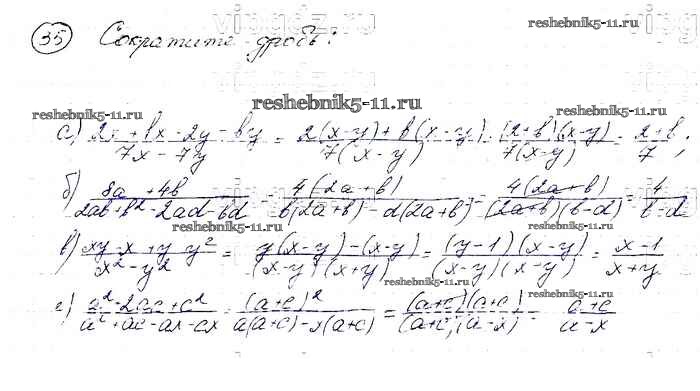 35 Сократите дробь:
reshebnik5-11.ru
reshebnik5-11.ru
reshebnik5-11.ru
reshebnik5-11.ru
а) (2x + bx - 2y - by)/(7x - 7y) = (2(x-y) + b(x-y))/(7(x-y)) = ((2+b)(x-y))/(7(x-y)) = (2+b)/7;
б) (8a + 4b)/(2ab + b² - 2ad - bd) = (4(2a+b))/(b(2a+b) - d(2a+b)) = (4(2a+b))/((2a+b)(b-d)) = 4/(b-d)
в) (xy - x + y - y²)/(x² - y²) = (y(x-y) - (x-y))/((x-y)(x+y)) = ((y-1)(x-y))/((x-y)(x-y)) = (x-1)/(x+y)
reshebnik5-11.ru
reshebnik5-11.ru
г) (a² - 2ac + c²)/(a² + ac - ax - cx) = (a+c)²/(a(a+c) - x(a+c)) = ((a+c)(a+c))/((a+c)(a-x)) = (a+c)/(a-x)